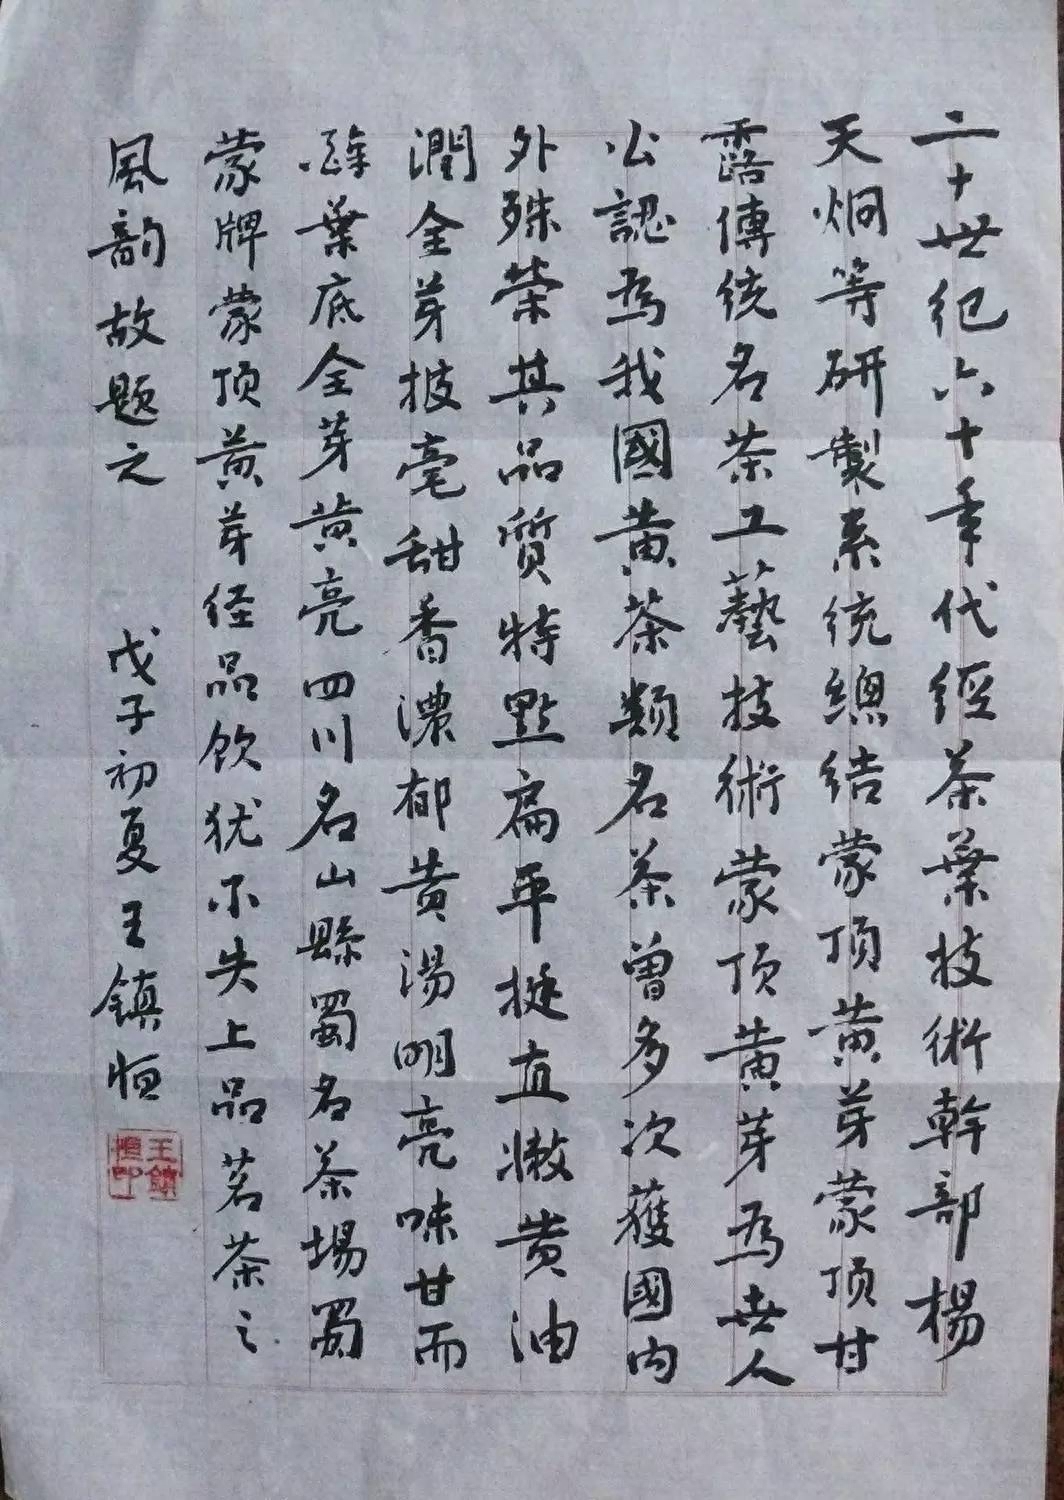 二十世纪六十年代經茶葉技術幹部楊
天炯等研製系統總结蒙頂黄芽蒙頂甘
露傳统名茶工藝技術蒙頂黄芽為世人
公認為我國黄茶類名茶曾多次獲國内
外殊荣其品質特點扁平挺直嫩黄油
潤全芽披毫甜香濃郁黄湯明亮味甘而
醇葉底全芽黄亮四川名山縣蜀名茶場蜀
蒙牌蒙顶黄芽径品飲犹不失上品茗茶之
風韵故题之 戊子初夏王鎮恒
王鎮恒印